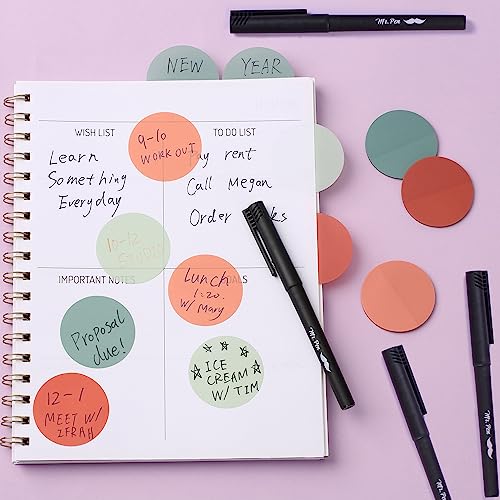 Mr. Pen
NEW YEAR
WISH LIST
Learn
Something
Everyday
9-10
WORK OUT
TO DO LIST
Pay rent
Call Megan
Order
10-12
IMPORTANT NOTES
Proposal
due!
12-1
MEET W/
ZFRAH
Lunch
1:20
W/ Mary
ICE
CREAM
W/ TIM
Mr. Pen
Mr. Pen
Mr. Pen